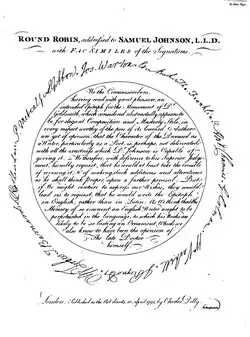 To face Page
ROUND ROBIN, addressed to SAMUEL JOHNSON, L.L.D.
with FAC SIMILES of the Signatures.
We the Circumscribers,
having read with great pleasure, an
intended Epitaph for the Monument of Dr.
Goldsmith, which considered abstractedly appears to
be, for elegant Composition and Masterly Stile, in
every respect worthy of the pen of its learned Author;
are yet of opinion, that the Character of the Deceased as
a Writer, particularly as a Poet, is, perhaps, not delineated
with all the exactness which Dr. Johnson is Capable of
giving it. We therefore, with deference to his Superior Judg-
ment, humbly request, that he would at least take the trouble
of revising it; & of making such additions and alterations
as he shall think proper, upon a farther perusal. But
if We might venture to express our Wishes, they would
lead us to request, that he would write the Epitaph
in English, rather than in Latin: As We think that the
Memory of so eminent an English Writer ought to be
perpetuated in the language, to which his Works are
likely to be so lasting an Ornament, Which we
also know to have been the opinion of
The late Doctor
himself.
Jos. Warton
London. Published as the Act directs, 10 April, 1791, by Charles Dilly.